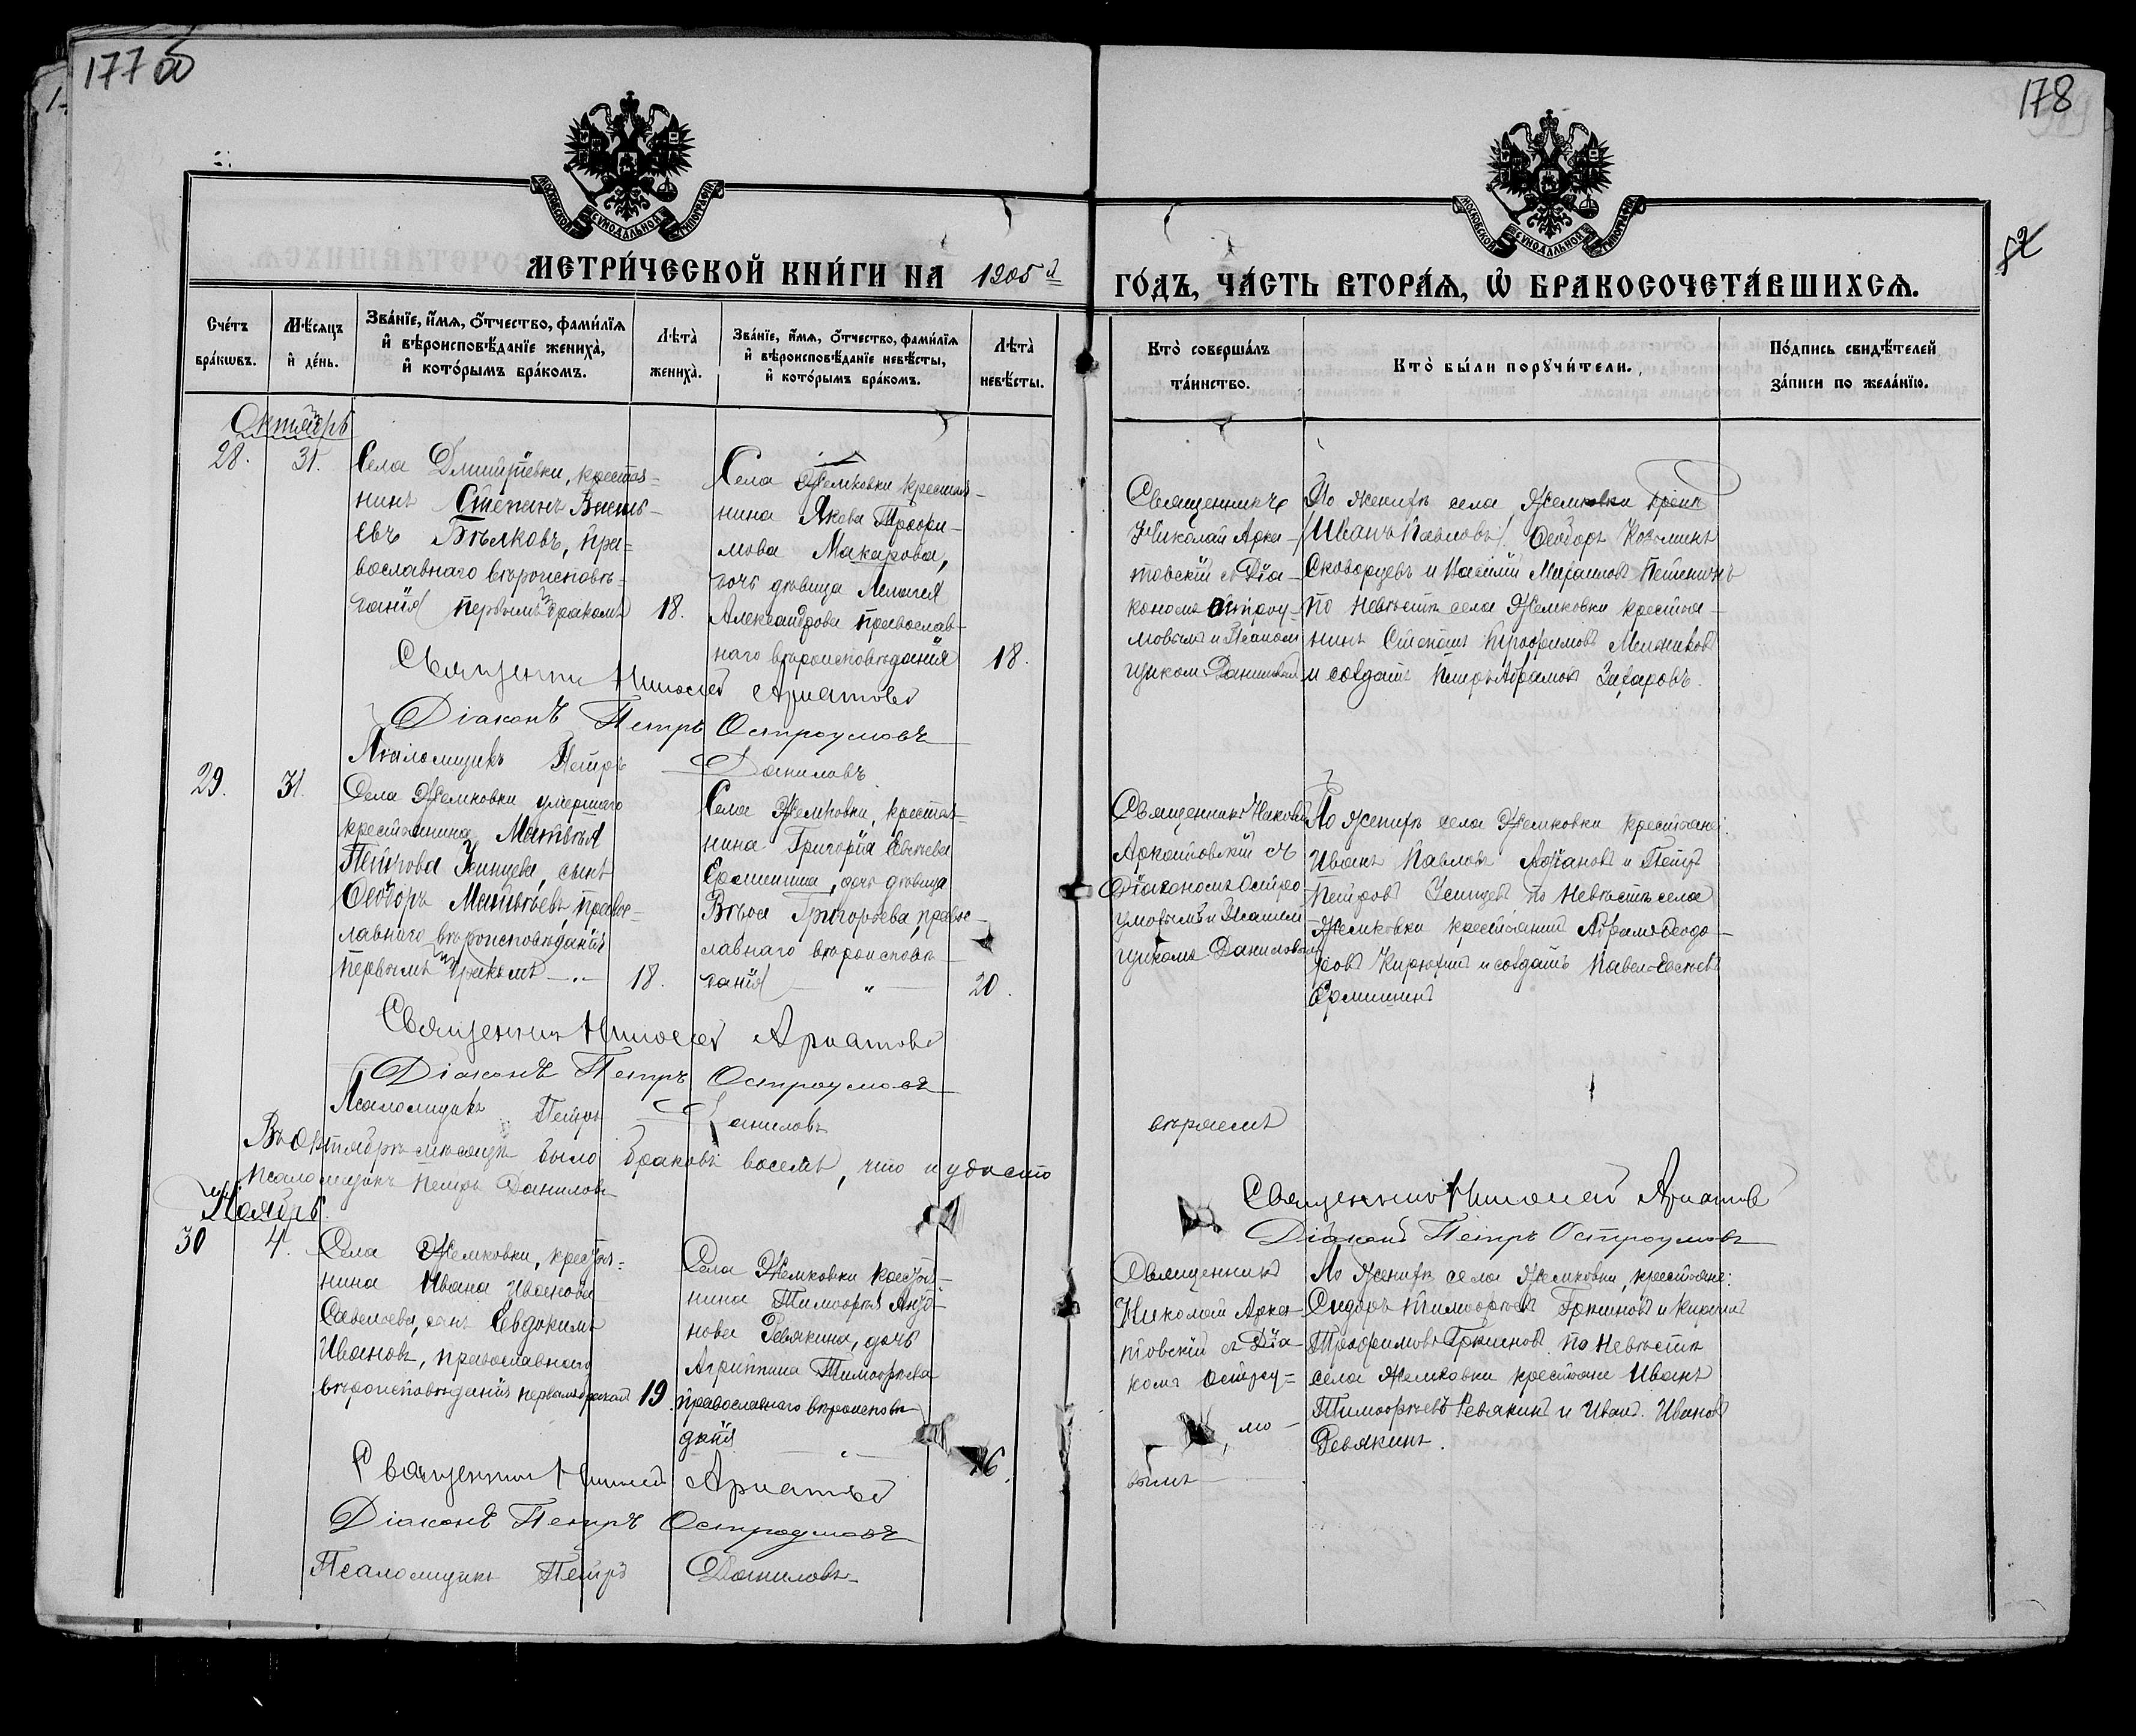 177 об
178
82
МОСКОВСКОЙ СѴНОДАЛЬНОЙ ТИПОГРАФІИ
МОСКОВСКОЙ СѴНОДАЛЬНОЙ ТИПОГРАФІИ
МЕТРИ́ЧЕСКОЙ КНИ́ГИ НА 1905й
ГО́ДЪ, ЧА́СТЬ ВТОРА́Ѧ, Ѡ҆ БРАКОСОЧЕТА́ВШИХСѦ.
Сче́тъ бра́кѡвъ.
Мѣ́сѧцъ и҆ де́нь.
Зва́нїе, и҆́мѧ, ѻ҆́тчество, фами́лїѧ и҆ вѣроисповѣ́данїе жениха̀, и҆ кото́рымъ бра́комъ.
Лѣта̀ жениха̀.
Зва́нїе, и҆́мѧ, ѻ҆́тчество, фами́лїѧ и҆ вѣроисповѣ́данїе невѣ́сты, и҆ кото́рымъ бра́комъ.
Лѣта̀ невѣ́сты.
Кто̀ соверша́лъ та́инство.
Кто̀ бы́ли порꙋчи́тели.
По́дпись свидѣ́телей за́писи по жела́нїю.
Октябрь
28.
31.
Села Дмитріевки, крестья=
нинъ Стефанъ Василь-
евъ Бѣлковъ, пра=
вославнаго вѣроисповѣ-
данія первымъ бракомъ
18.
Села Жемковки крестья-
нина Якова Трофи-
мова Макарова,
дочь дѣвица
Александрова православ-
наго вѣроисповѣданія
18.
Священникъ
Николай Арха-
товскій съ Діа-
кономъ Остроу-
мовымъ и Псалом
щикомъ Даниловым
По женихѣ села Жемковки
/Иванъ Павловъ/ Ѳеодоръ
Скворцовъ и Василій
по невѣстѣ села Жемковки крестья-
нинъ Стефанъ Трофимовъ Мельниковъ
и солдатъ Петръ Абрамовъ Захаровъ.
Священник Николай
Діаконъ Петръ Остроумовъ
Псаломщикъ Петръ Даниловъ
29.
31.
Села Жемковки умершаго
крестьянина Матвѣя
Петрова сынъ
Ѳеодоръ Матвѣевъ, правос=
лавнаго вѣроисповѣданія
первымъ бракомъ
18.
Села Жемковки, крестья=
нина Григорія Евсеева
дочь дѣвица
Вѣра Григорьева, правос-
лавнаго вѣроисповѣ-
данія - " -
20.
Священникъ Никол
съ
Діакономъ Остро
умовымъ и Псалом
щикомъ Даниловым
По женихѣ села Жемковки крестьяне:
Иванъ Павловъ и Петръ
Петровъ по невѣстѣ села
Жемковки крестьянинъ Абрамъ Ѳеодо-
ровъ Кирюхинъ и солдатъ Павелъ Евсеевъ
Священник Николай
Діаконъ Петръ Остроумовъ
Псаломщикъ Петръ Даниловъ
Въ Октябрѣ мѣсяцѣ было браковъ восемь, что и удосто
вѣряемъ
Псаломщикъ Петръ Даниловъ
Священник Николай
Діаконъ Петръ Остроумовъ
Ноябрь.
30
4.
Села Жемковки, крестья=
нина Ивана Иванова
Савельева, сынъ Евдокимъ
Ивановъ, православнаго
вѣроисповѣданія первымъ бракомъ
19.
Села Жемковки крестья-
нина Тимоѳея Анто-
нова Ревякина, дочь
Агриппина Тимоѳеева
православнаго вѣроисповѣ-
данія
16.
Священникъ
Николай Арха-
товскій съ Діа-
кономъ Остроу=
мо-
вымъ
По женихѣ села Жемковки, крестьяне:
Сидоръ Тимоѳеевъ и Кирилъ
Трофимовъ по невѣстѣ
села Жемковки крестьяне Иванъ
Тимоѳеевъ Ревякинъ и Иванъ Ивановъ
Ревякинъ.
Священник Николай
Діаконъ Петръ Остроумовъ
Псаломщикъ Петръ Даниловъ